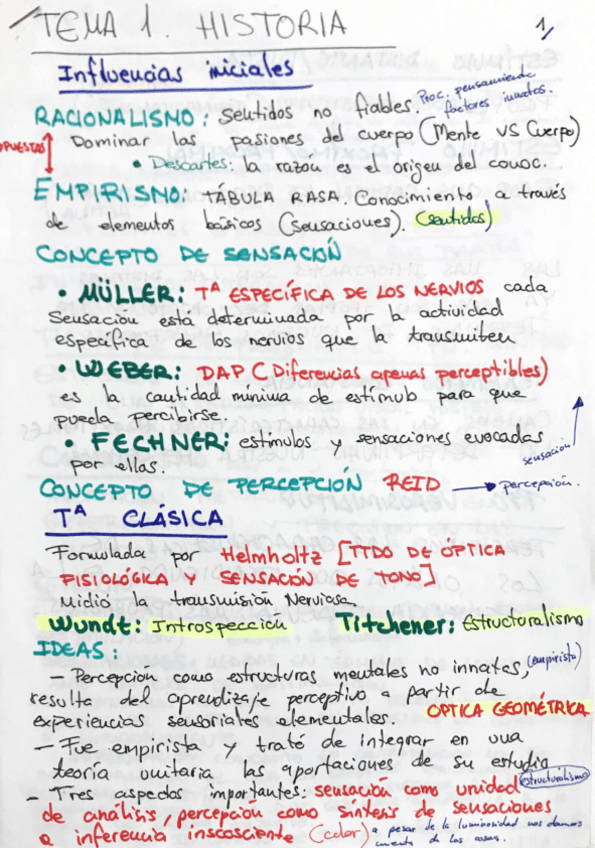 TEMA 1. HISTORIA
1
Influencias iniciales
RACIONALISMO: Sentidos no fiables. Proc. pensamiento
factores innatos.
OPUESTOS Dominar las pasiones del cuerpo (Mente VS Cuerpo)
• Descartes: la razón es el origen del conoc.
EMPIRISMO: TÁBULA RASA. Conocimiento a través
de elementos básicos (sensaciones). (sentidos)
CONCEPTO DE SENSACIÓN
• MÜLLER: Tª ESPECÍFICA DE LOS NERVIOS cada
sensación está determinada por la actividad
específica de los nervios que la transmiten
• WEBER: DAP (Diferencias apenas perceptibles)
es la cantidad mínima de estímulo para que
pueda percibirse.
• FECHNER: estímulos y sensaciones evocadas
por ellas.
sensación
CONCEPTO DE PERCEPCIÓN REID → percepción.
Tª CLÁSICA
Formulada por Helmholtz [TTDO DE ÓPTICA
FISIOLÓGICA Y SENSACIÓN DE TONO]
Midió la transmisión Nerviosa.
Wundt: Introspección Titchener: Estructuralismo
IDEAS:
- Percepción como estructuras mentales no innatas, (empirista)
resulta del aprendizaje perceptivo a partir de
experiencias sensoriales elementales. OPTICA GEOMÉTRICA
- Fue empirista y trató de integrar en una
teoría unitaria las aportaciones de su estudio
- Tres aspectos importantes: sensación como unidad (estructuralismo)
de análisis, percepción como síntesis de sensaciones
e inferencia inscosciente (color) a pesar de la luminosidad nos damos
cuenta de las cosas.